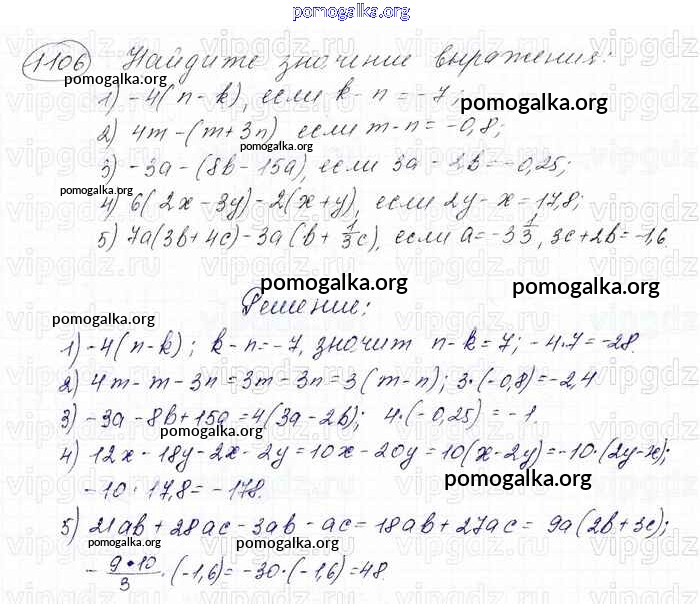 pomogalka.org
1106 Найдите значение выражения:
pomogalka.org
1) -4(n-k), если k-n=-7;
pomogalka.org
2) 4m-(m+3n) если m-n=-0,8;
3) -3a-(8b-15a), если 3a-2b=-0,25;
pomogalka.org
4) 6(2x-3y)-2(x+y), если 2y-x=17,8;
5) 7a(3b+4c)-3a(b+1/3c), если a=-3 1/3, 3c+2b=-1,6.
pomogalka.org
pomogalka.org
pomogalka.org
Решение:
1) -4(n-k); k-n=-7, значит n-k=7; -4·7=-28.
2) 4m-m-3n=3m-3n=3(m-n); 3·(-0,8)=-2,4
3) -3a-8b+15a=4(3a-2b); 4·(-0,25)=-1
pomogalka.org
4) 12x-18y-2x-2y=10x-20y=10(x-2y)=-10·(2y-x);
pomogalka.org
-10·17,8=-178.
5) 21ab+28ac-3ab-ac=18ab+27ac=9a(2b+3c);
pomogalka.org
pomogalka.org
-9·10/3·(-1,6)=-30·(-1,6)=48.
pomogalka.org